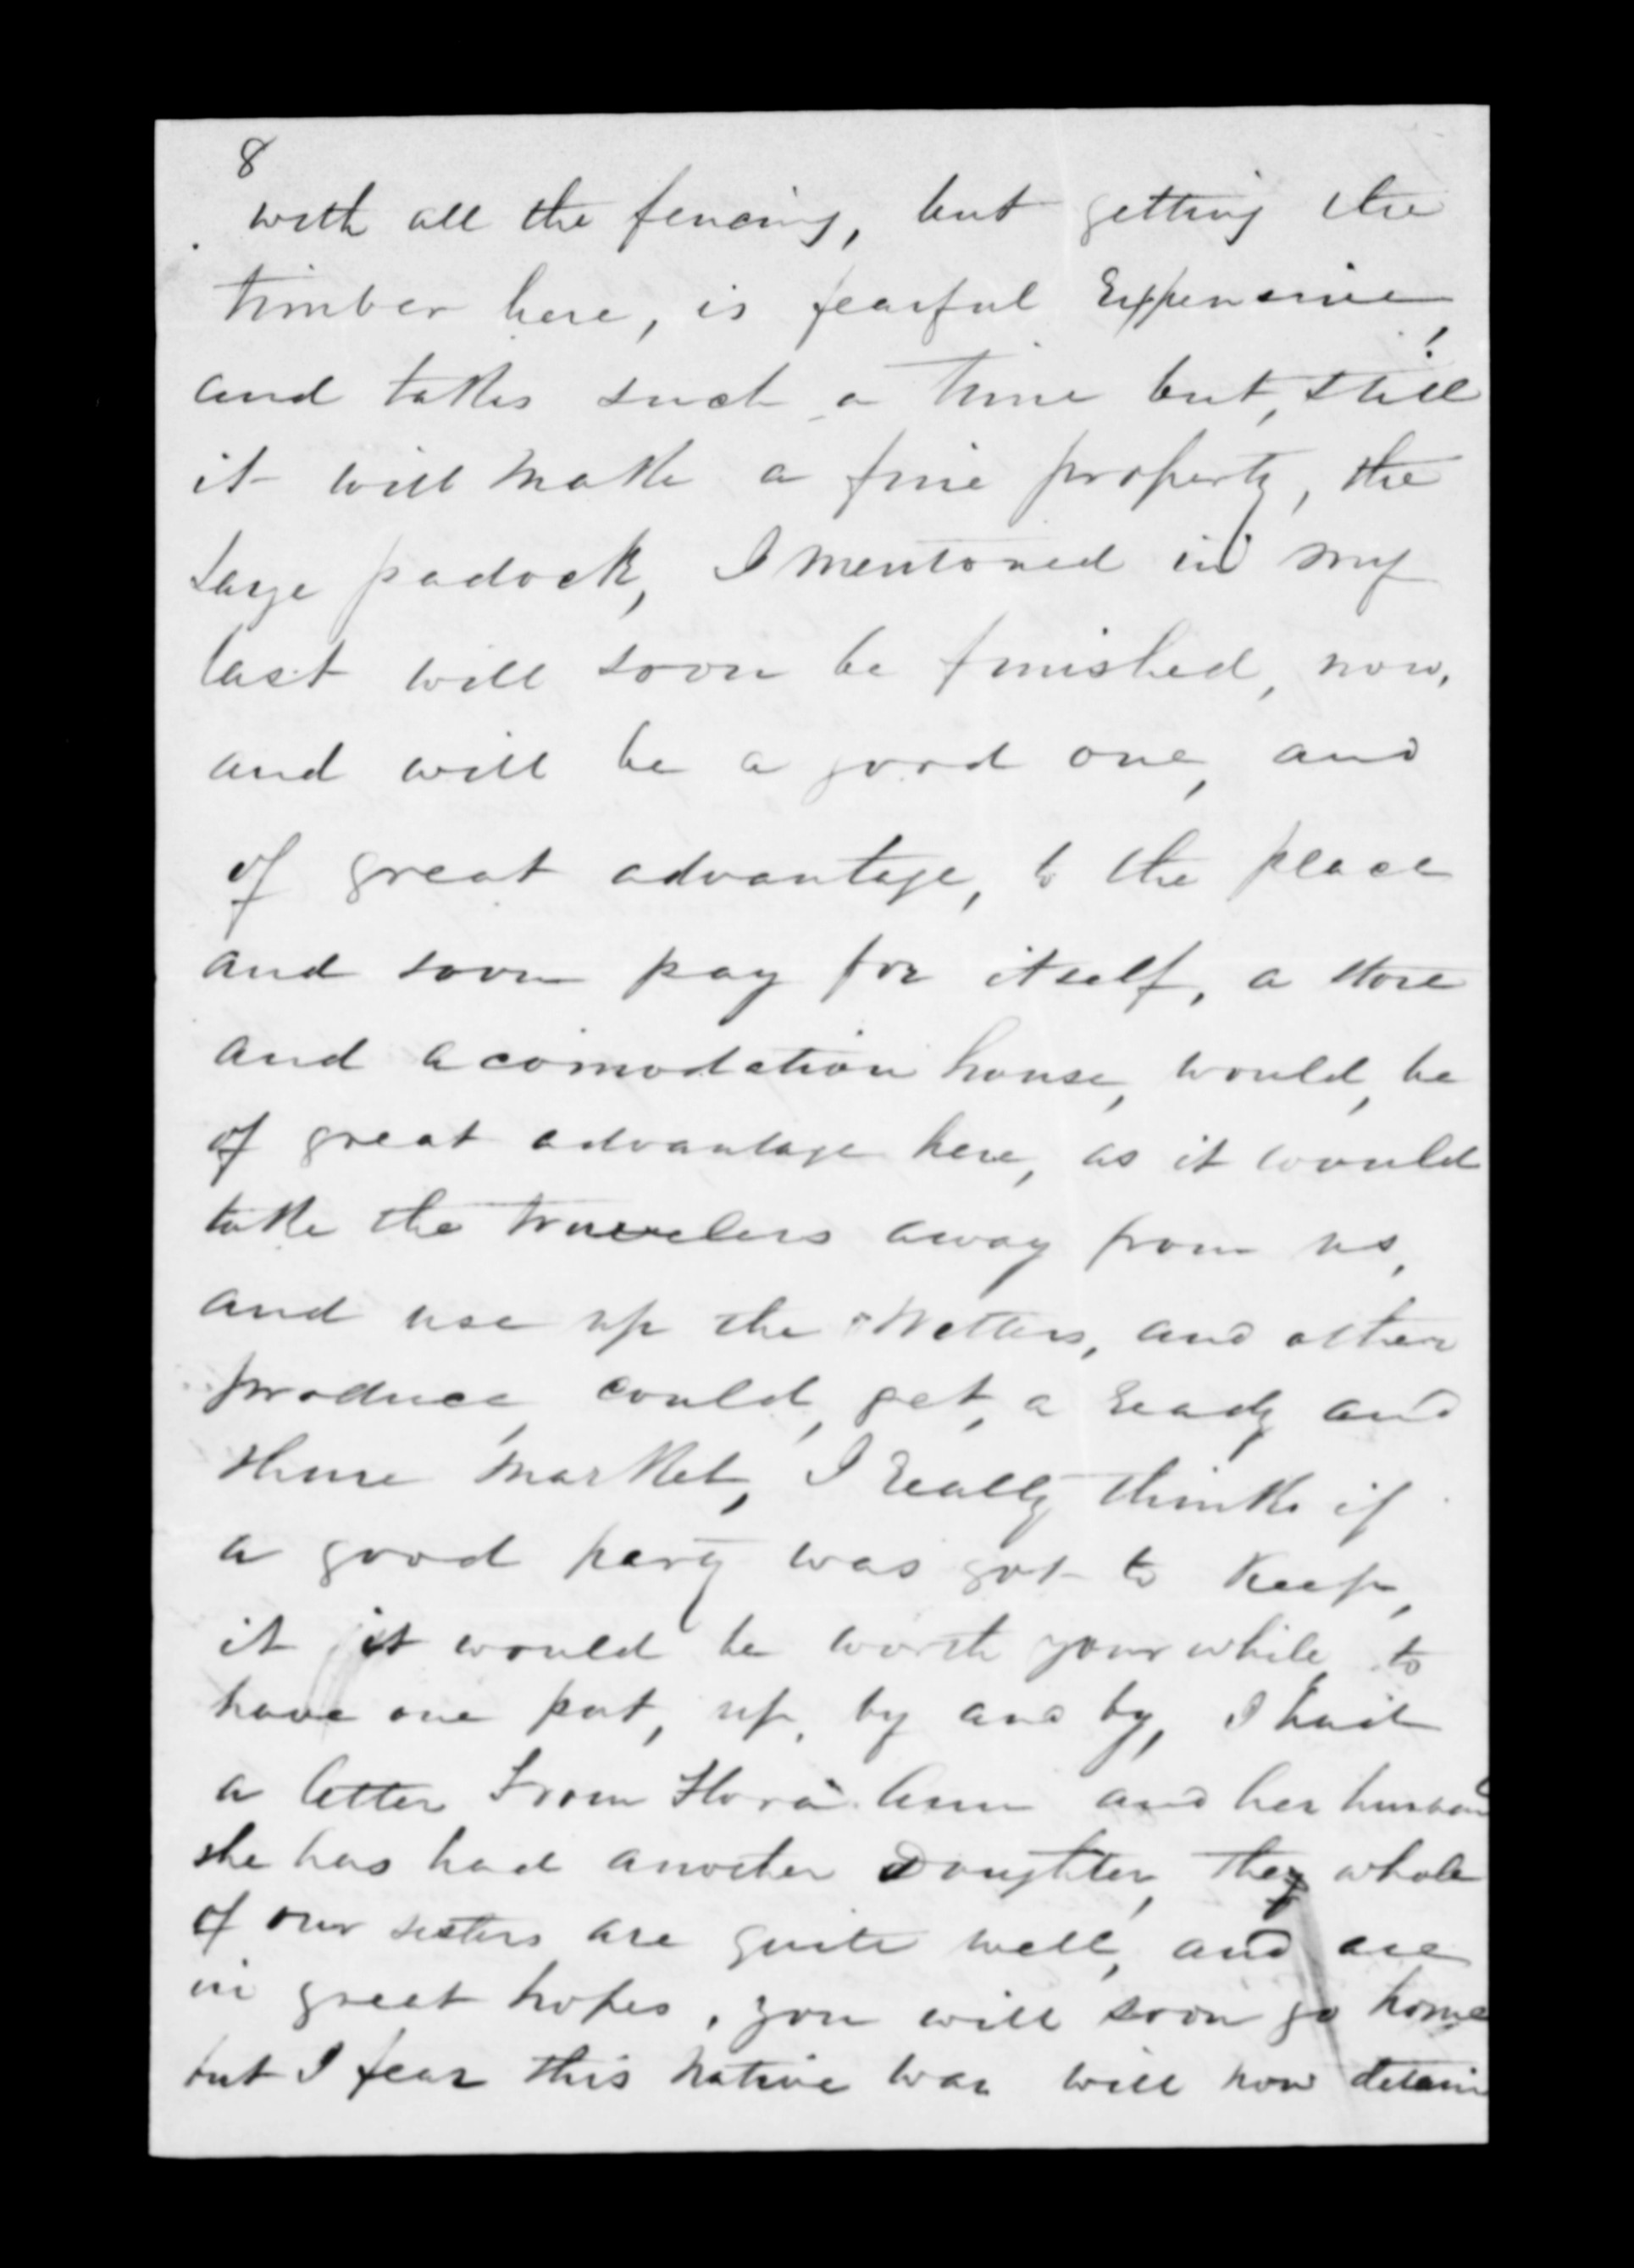 8
with all the fencing, but getting the
timber here, is fearful Expensive,
and takes such a time but, still
it will make a fine property, the
large padock, I mentoned in my
last will soon be finished, now,
and will be a good one, and
of great advantage, to the place
and soon pay for itself, a store
and acomodation house, would, be
of great advantage here, as it would
take the travelers away from us,
and use up the Wethers, and other
produce, could, get, a ready and
Home market, I really thinks if
a good party was got to keep,
it it would be worth your while, to
have one put, up, by and by, I had
a letter From Flora Ann and her husband
she has had another Daughter, they whole
of our sisters are quite well, and are
in great hopes, you will soon go home
but I fear this native war will now detain